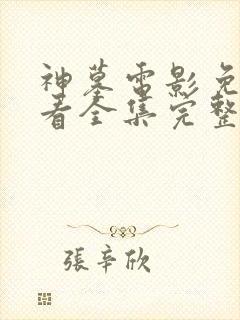 神墓电影免
看全集完整
張辛欣